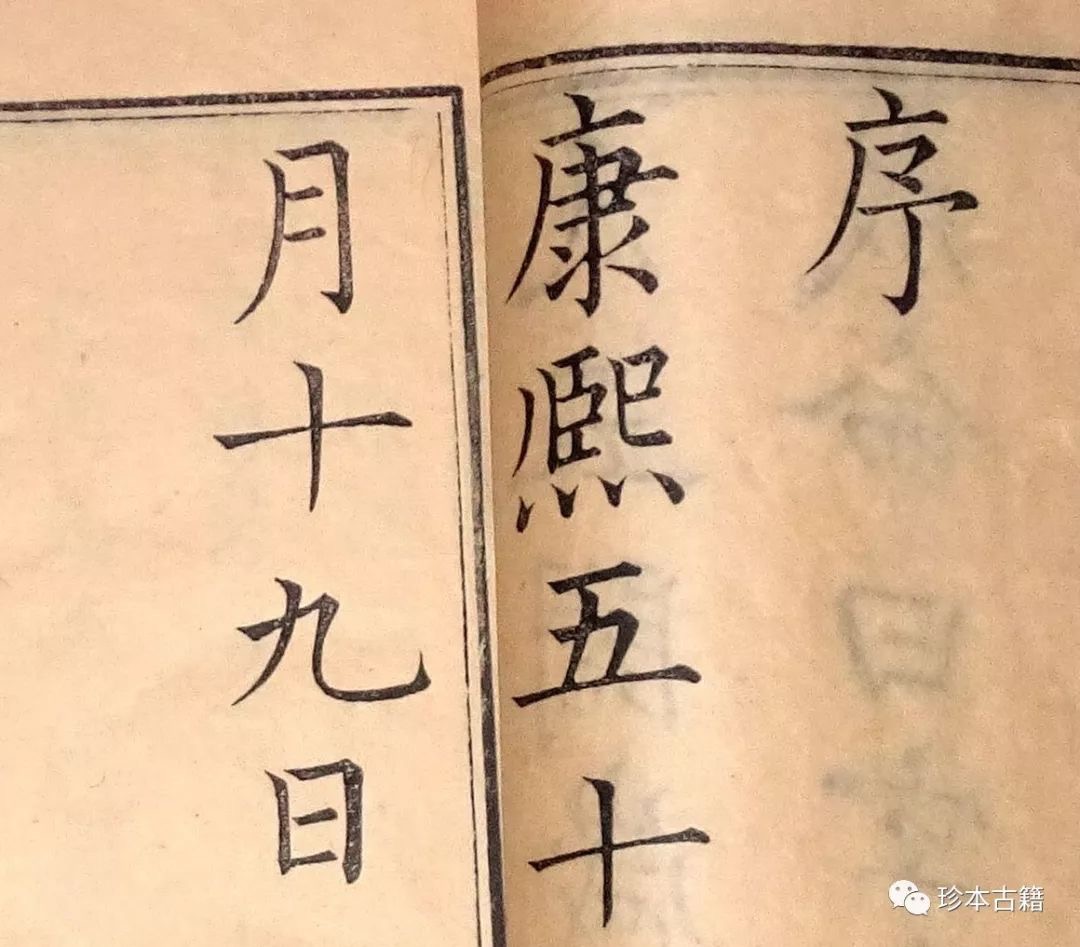 序
康熙五十
月十九日
珍本古籍